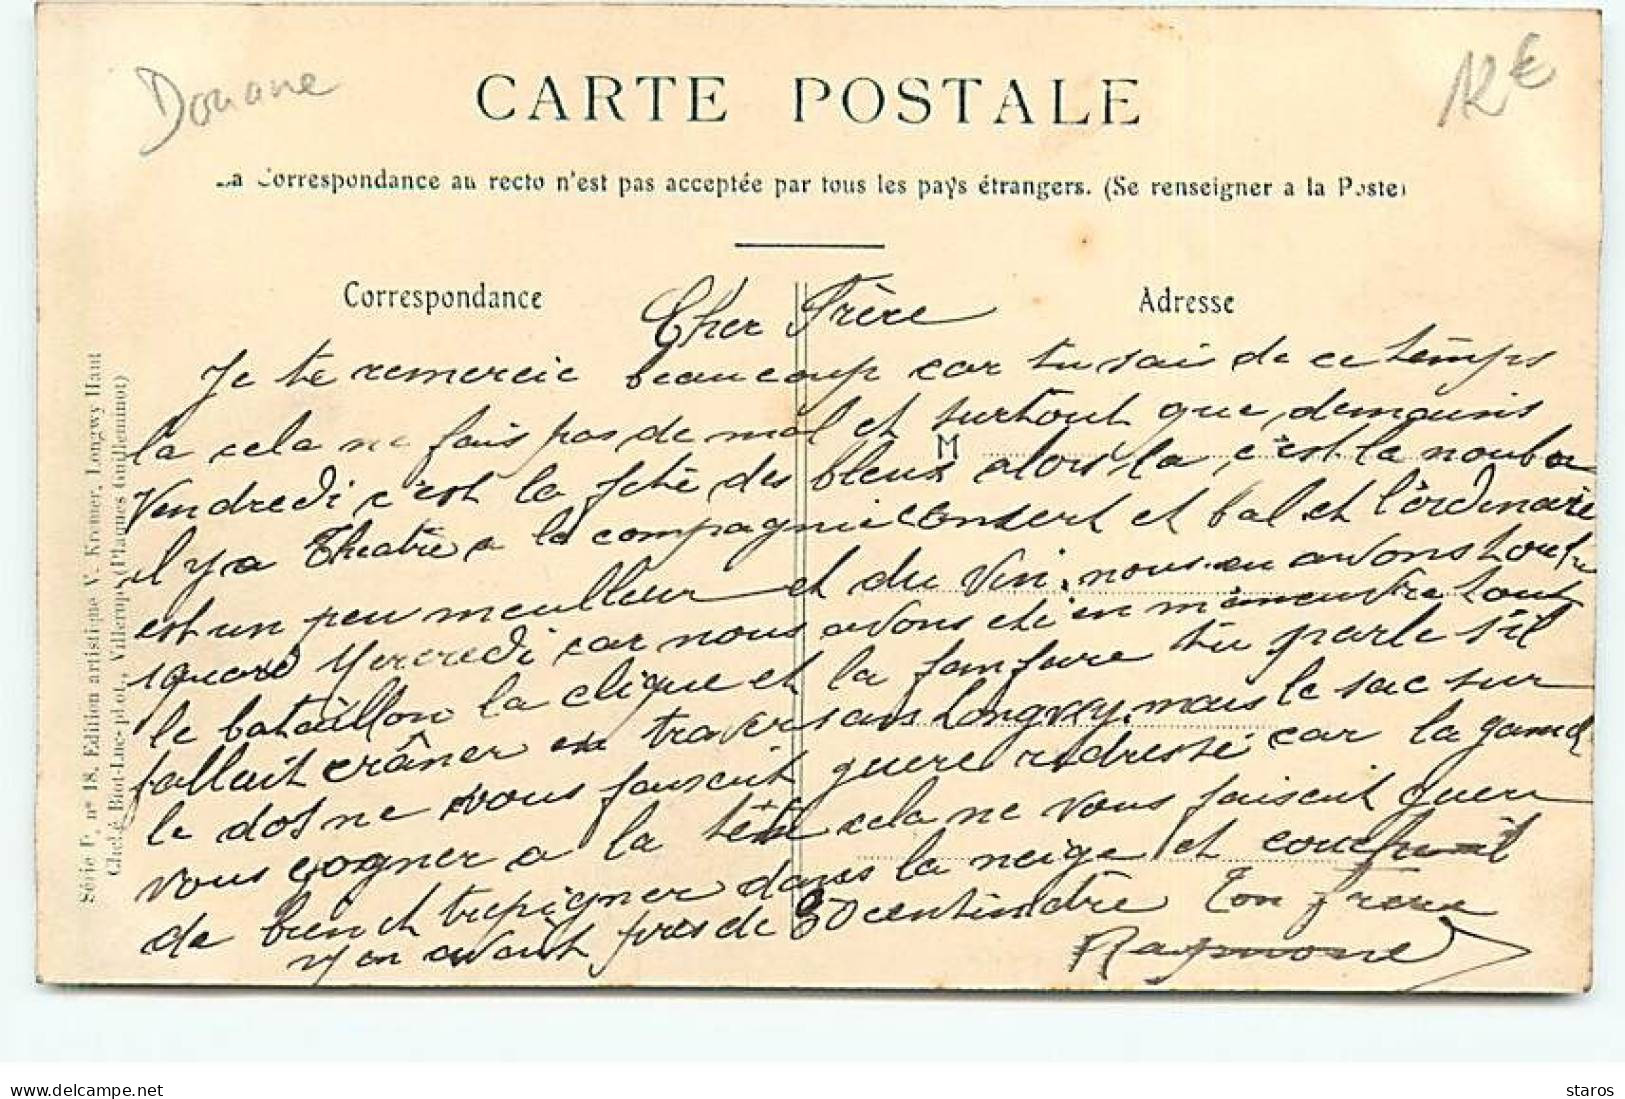 Douane
12€
CARTE POSTALE
La Correspondance au recto n'est pas acceptée par tous les pays étrangers. (Se renseigner a la Poste)
Correspondance
Adresse
Cher Frère
Je te remercie beaucoup car tu sais de ce temps
la cela ne fais pas de mal et surtout que demain
M
Vendredi c'est la fête des bleus alors la, c'est la nouba
il y a Theatre a la compagnie consert et bal et l'ordinaire
est un peu meulleur et du vin. nous en avons
Mercredi car nous avons été en manœuvre tout
le bataillon la clique et la fanfare tu parle s'il
fallait crâner en traversans Longwy. mais le sac sur
le dos ne vous faisait guere redressé car la gamel
vous cogner a la tête cela ne vous faisait guere
de bien et trepigner dans la neige et
y en avait pres de 30 centimetre Ton frere
Raymond
Série P. n° 18. Edition artistique V. Kremer, Longwy Haut
Cliché Biot-Luc phot., Villerupt (Plaques Guilleminot)
delcampe.net
staros